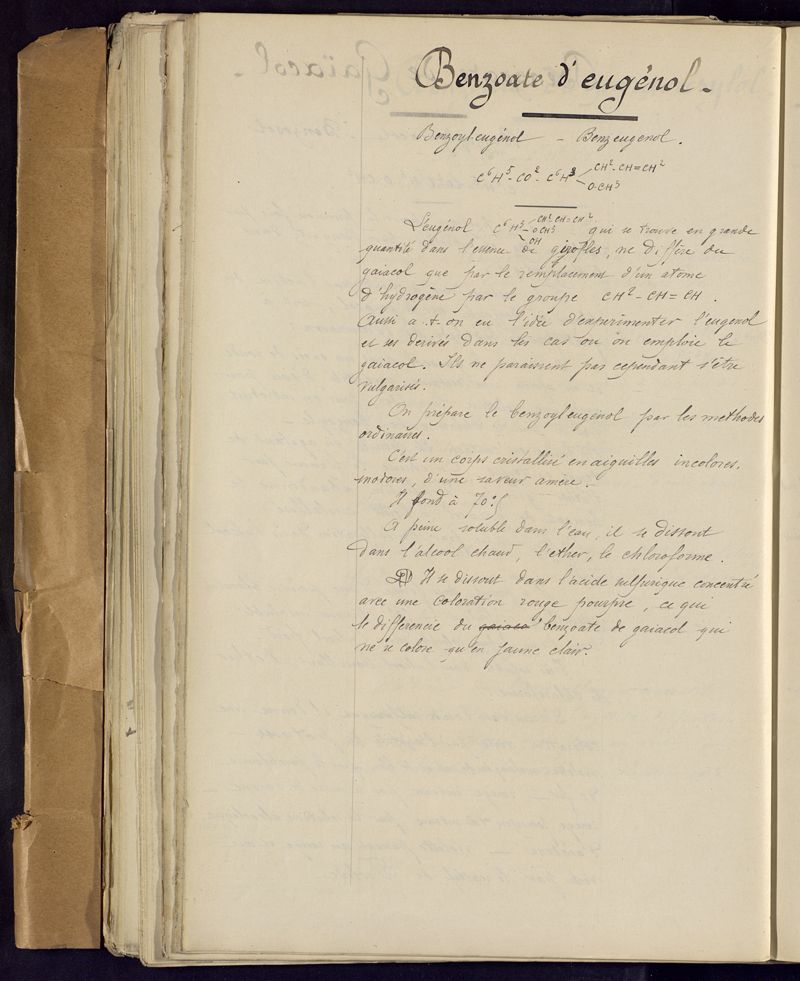 Benzoate d'eugénol -
Benzoyl-eugénol - Benzeugenol.
CH²-CH=CH²
C⁶H⁵-CO²-C⁶H³
O-CH³
CH²-CH=CH²
L'eugénol C⁶H³-OCH³ qui se trouve en grande
OH
quantité dans l'essence de girofles, ne diffère du
gaiacol que par le remplacement d'un atome
d'hydrogène par le groupe CH²-CH=CH.
Aussi a-t-on eu l'idée d'experimenter l'eugenol
et ses derivés dans les cas ou on emploie le
gaiacol. Ils ne paraissent pas cependant s'être
vulgarisés.
On prépare le benzoyl eugénol par les methodes
ordinaires.
C'est un corps cristallisé en aiguilles incolores,
inodores, d'une saveur amère.-
Il fond à 70°5
A peine soluble dans l'eau, il se dissout
dans l'alcool chaud, l'ether, le chloroforme.
Il se dissout dans l'acide sulfurique concentré
avec une coloration rouge pourpre, ce qui
le differencie du gaiacol benzoate de gaiacol qui
ne se colore qu'en jaune clair.